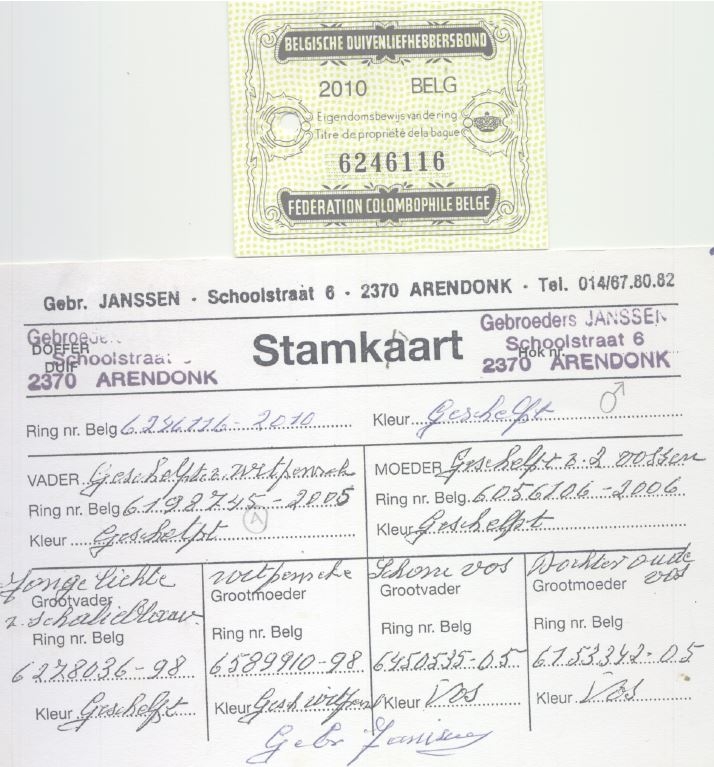 BELGISCHE DUIVENLIEFHEBBERSBOND
2010 BELG
Eigendomsbewijs van de ring
Titre de propriété de la bague
6246116
FÉDERATION COLOMBOPHILE BELGE
Gebr. JANSSEN - Schoolstraat 6 - 2370 ARENDONK - Tel. 014/67.80.82
Gebroeders
DOFFER
Schoolstraat
DUIF
2370 ARENDONK
Stamkaart
Gebroeders JANSSEN
Schoolstraat 6
Hok nr.
2370 ARENDONK
Ring nr. Belg 6246116-2010 Kleur Geschelpt ♂
VADER Geschelpte witpennek
Ring nr. Belg 6198745-2005
A
Kleur Geschelpt
MOEDER Geschelpt z. 2 vossen
Ring nr. Belg. 6056106-2006
Kleur Geschelpt
Jonge lichte
Grootvader
z. Schalieblauw
Ring nr. Belg
6278036-98
Kleur Geschelpt
witpenneke
Grootmoeder
Ring nr. Belg
6589910-98
Kleur Gesch witpen
Schone vos
Grootvader
Ring nr. Belg
6450535-05
Kleur Vos
Dochter oude
Grootmoeder vos
Ring nr. Belg
6753342-05
Kleur Vos
Gebr Janssen